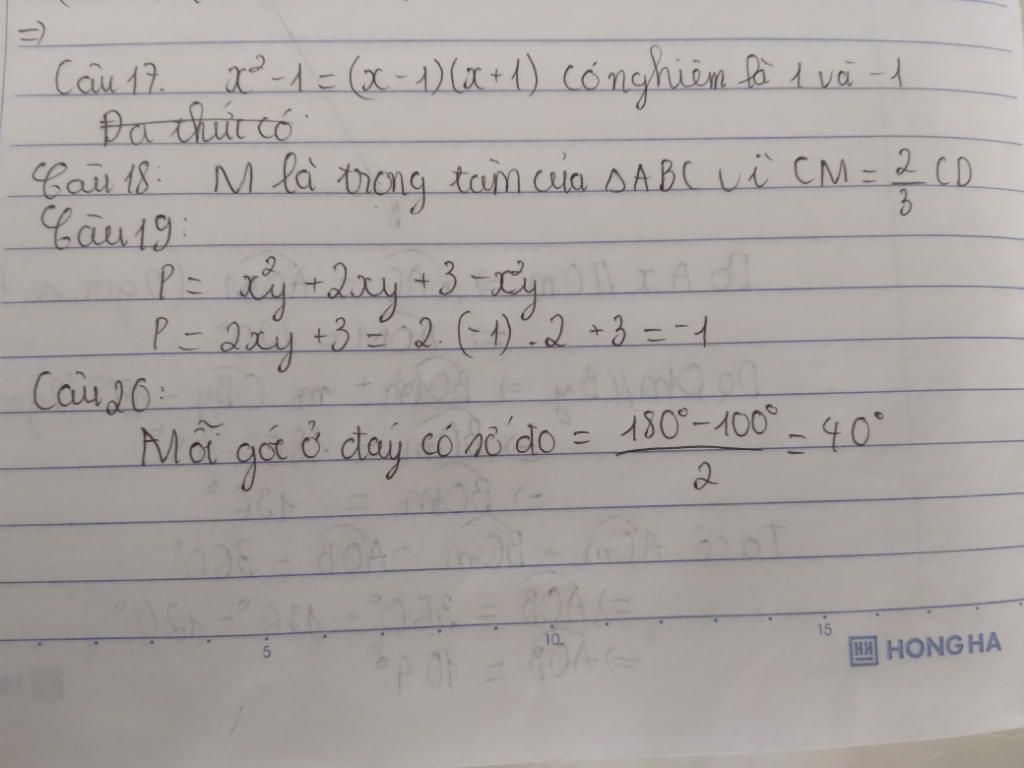 =>
Câu 17. x² - 1 = (x - 1)(x + 1) có nghiệm là 1 và -1
Đa thức có
Câu 18: M là trọng tâm của ΔABC vì CM = 2/3 CD
Câu 19:
P = x²y + 2xy + 3 - x²y
P = 2xy + 3 = 2. (-1) . 2 + 3 = -1
Câu 20:
Mỗi góc ở đáy có số đo = (180° - 100°)/2 = 40°
5 10 15
HH HONG HA